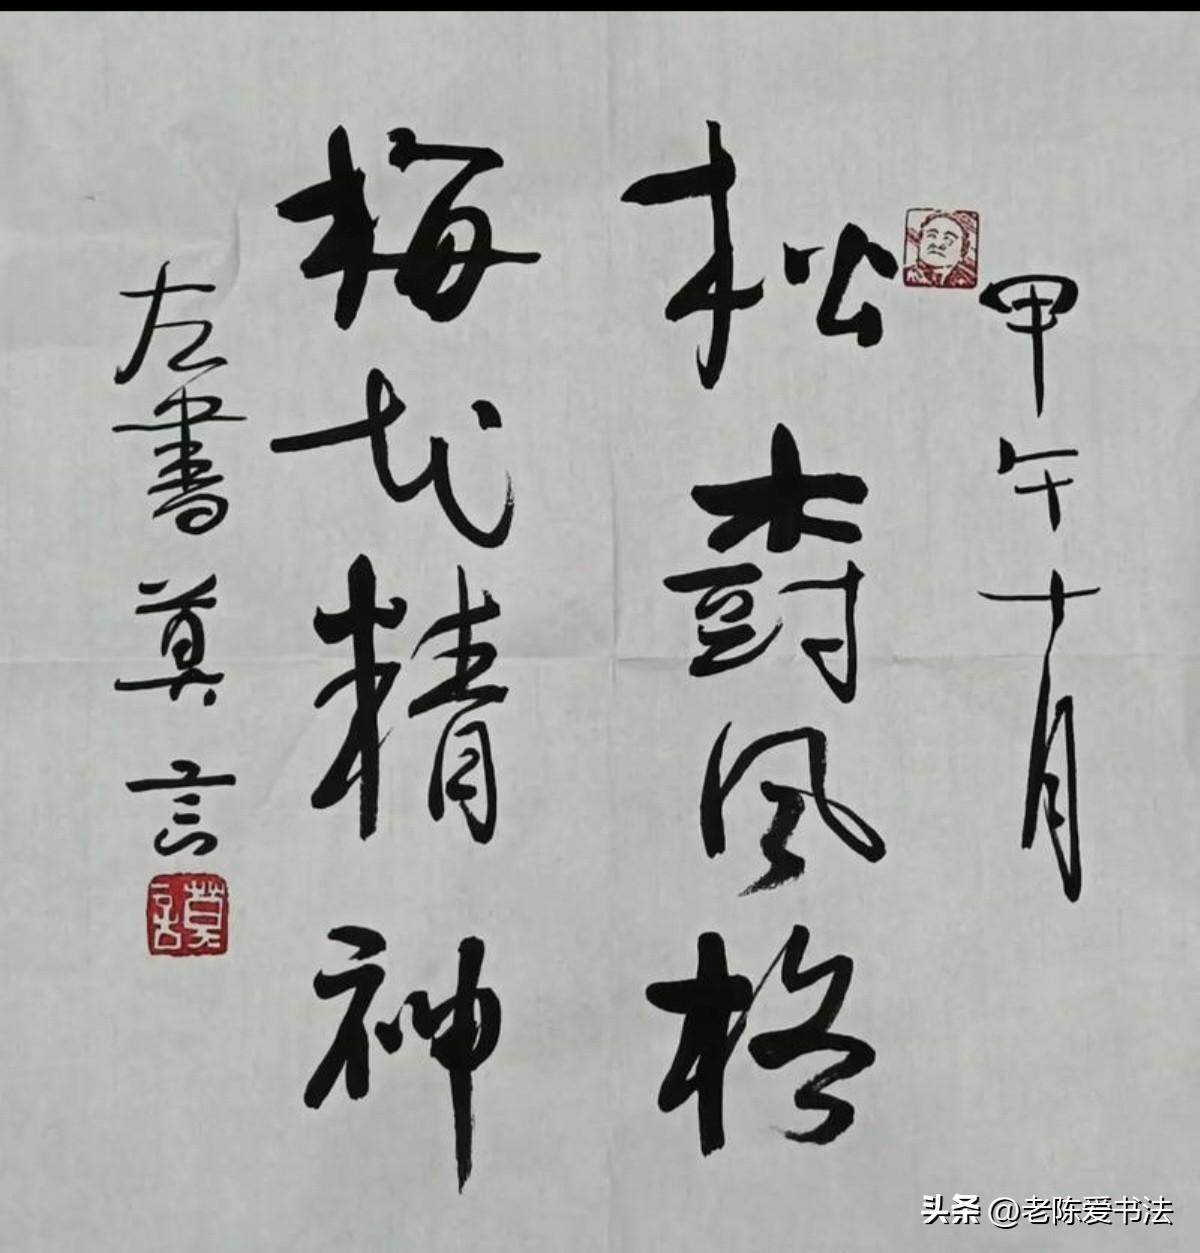 甲午十月
松樹风格
梅花精神
左書莫言
莫言
头条 @老陈爱书法